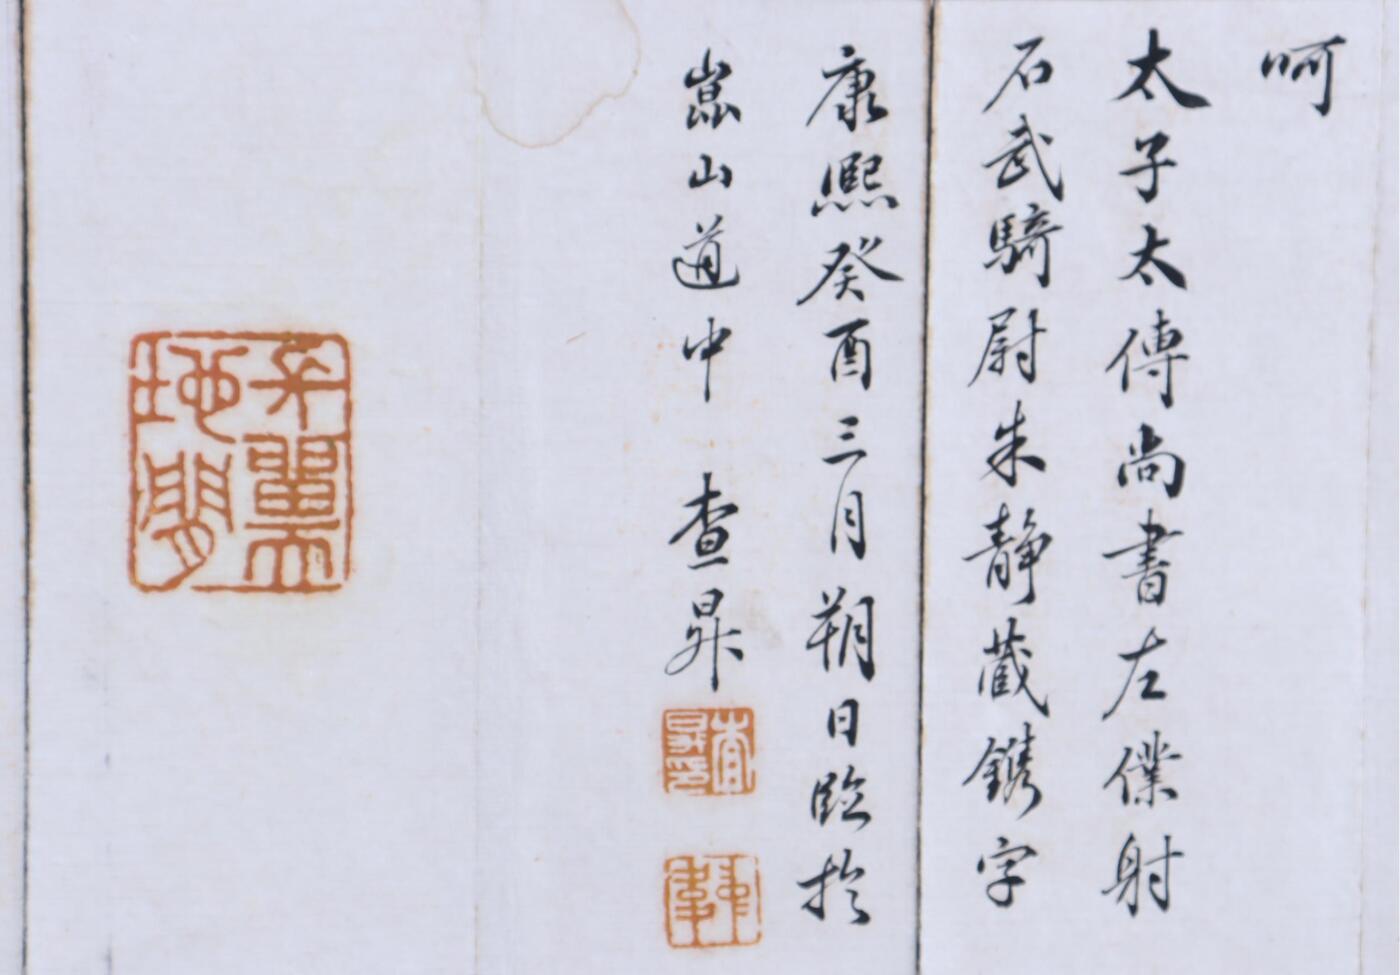 呵
太子太傅尚書左僕射
石武騎尉朱静藏鐫字
康熙癸酉三月朔日臨於
嵩山道中 查昇
查昇印